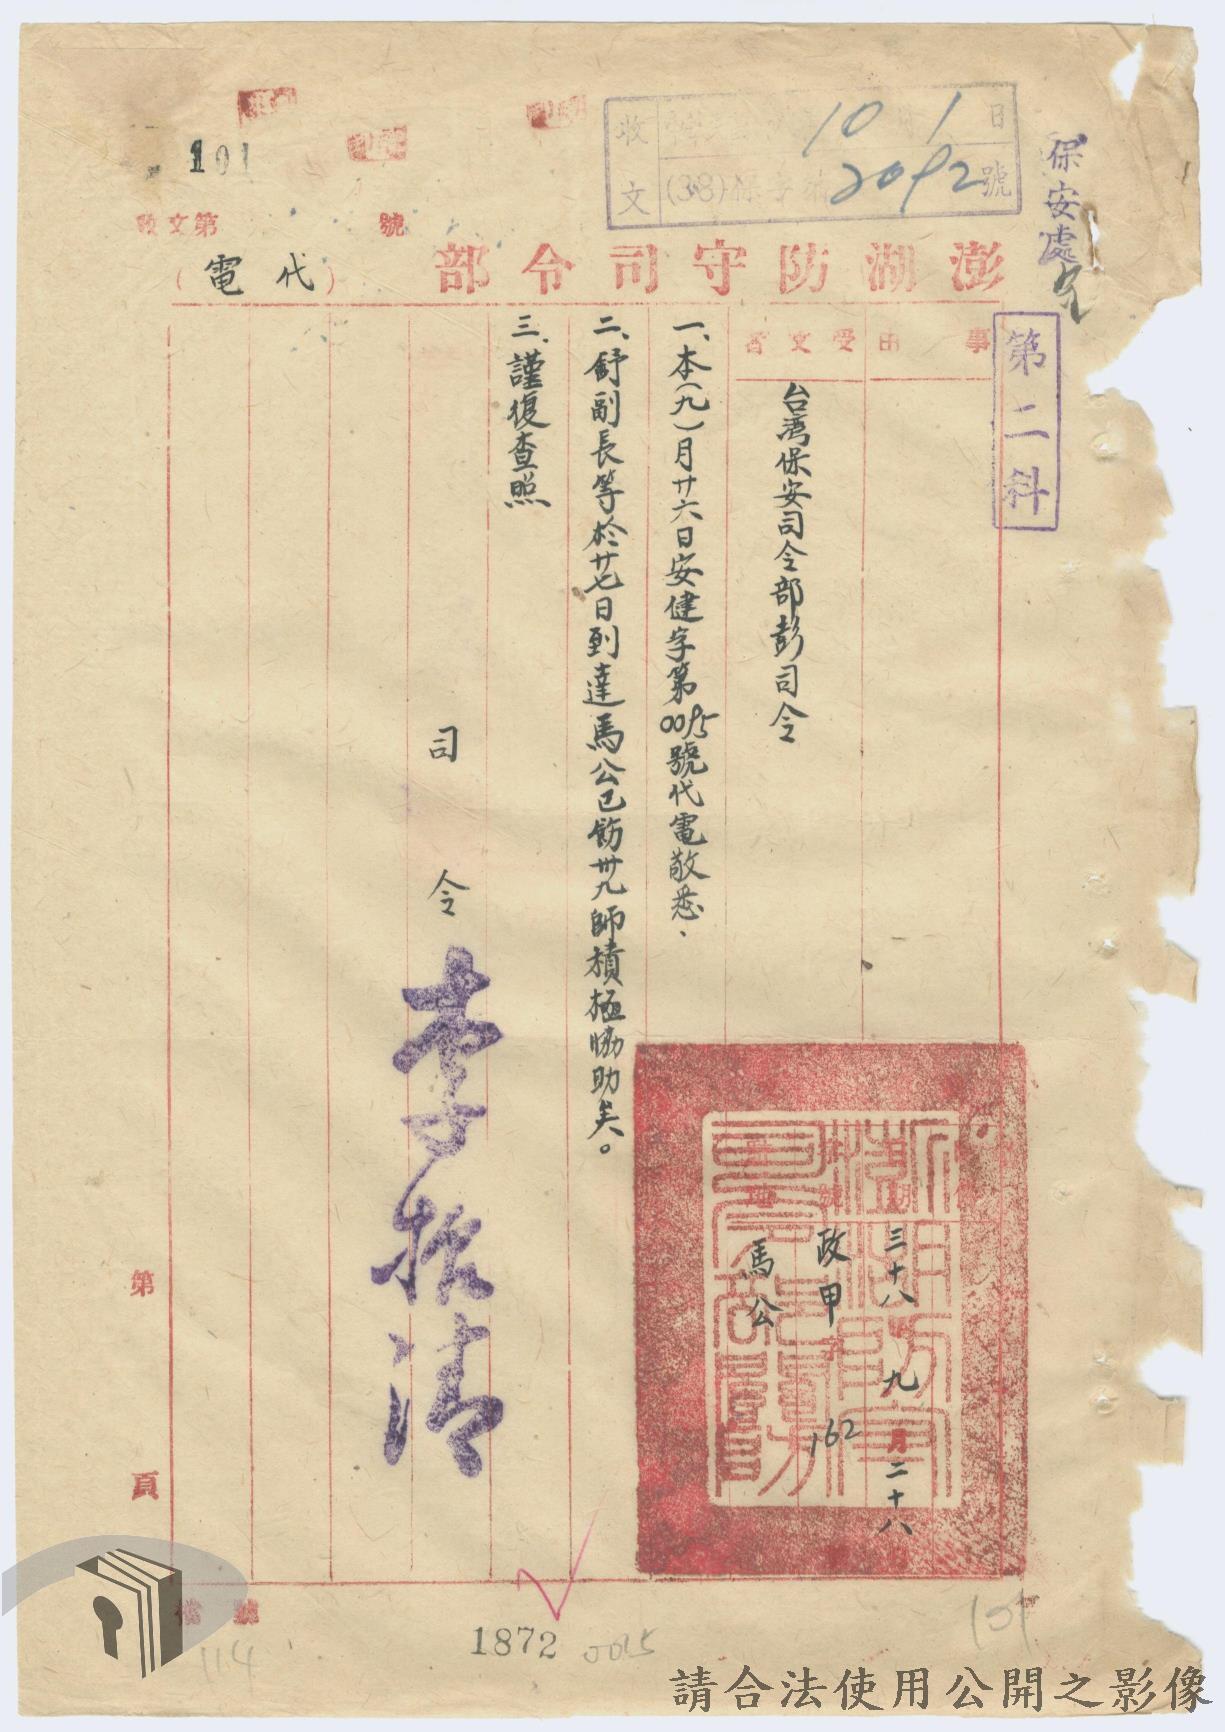 101
收文
10 1 日
(38)保字第2092號
保安處
收文第 號
澎湖防守司令部（代電）
第二科
事由
受文者
台灣保安司令部彭司令
三十八年九月二十八
政甲字162
馬公
一、本（九）月廿六日安健字第0095號代電敬悉、
二、舒副長等於廿七日到達馬公已飭卅九師積極協助矣。
三、謹復查照
司令 李振清
第 頁
檔號
114
1872
0095
101
請合法使用公開之影像